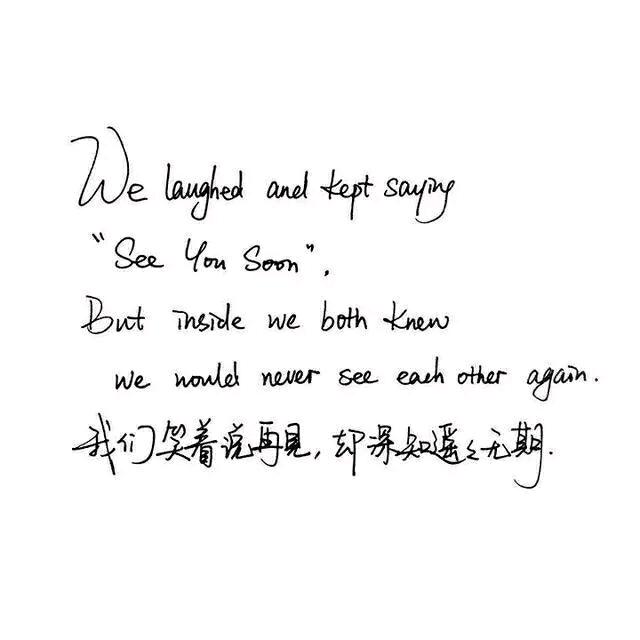 We laughed and kept saying
"See You Soon".
But inside we both knew
we would never see each other again.
我们笑着说再見,却深知遥々无期.